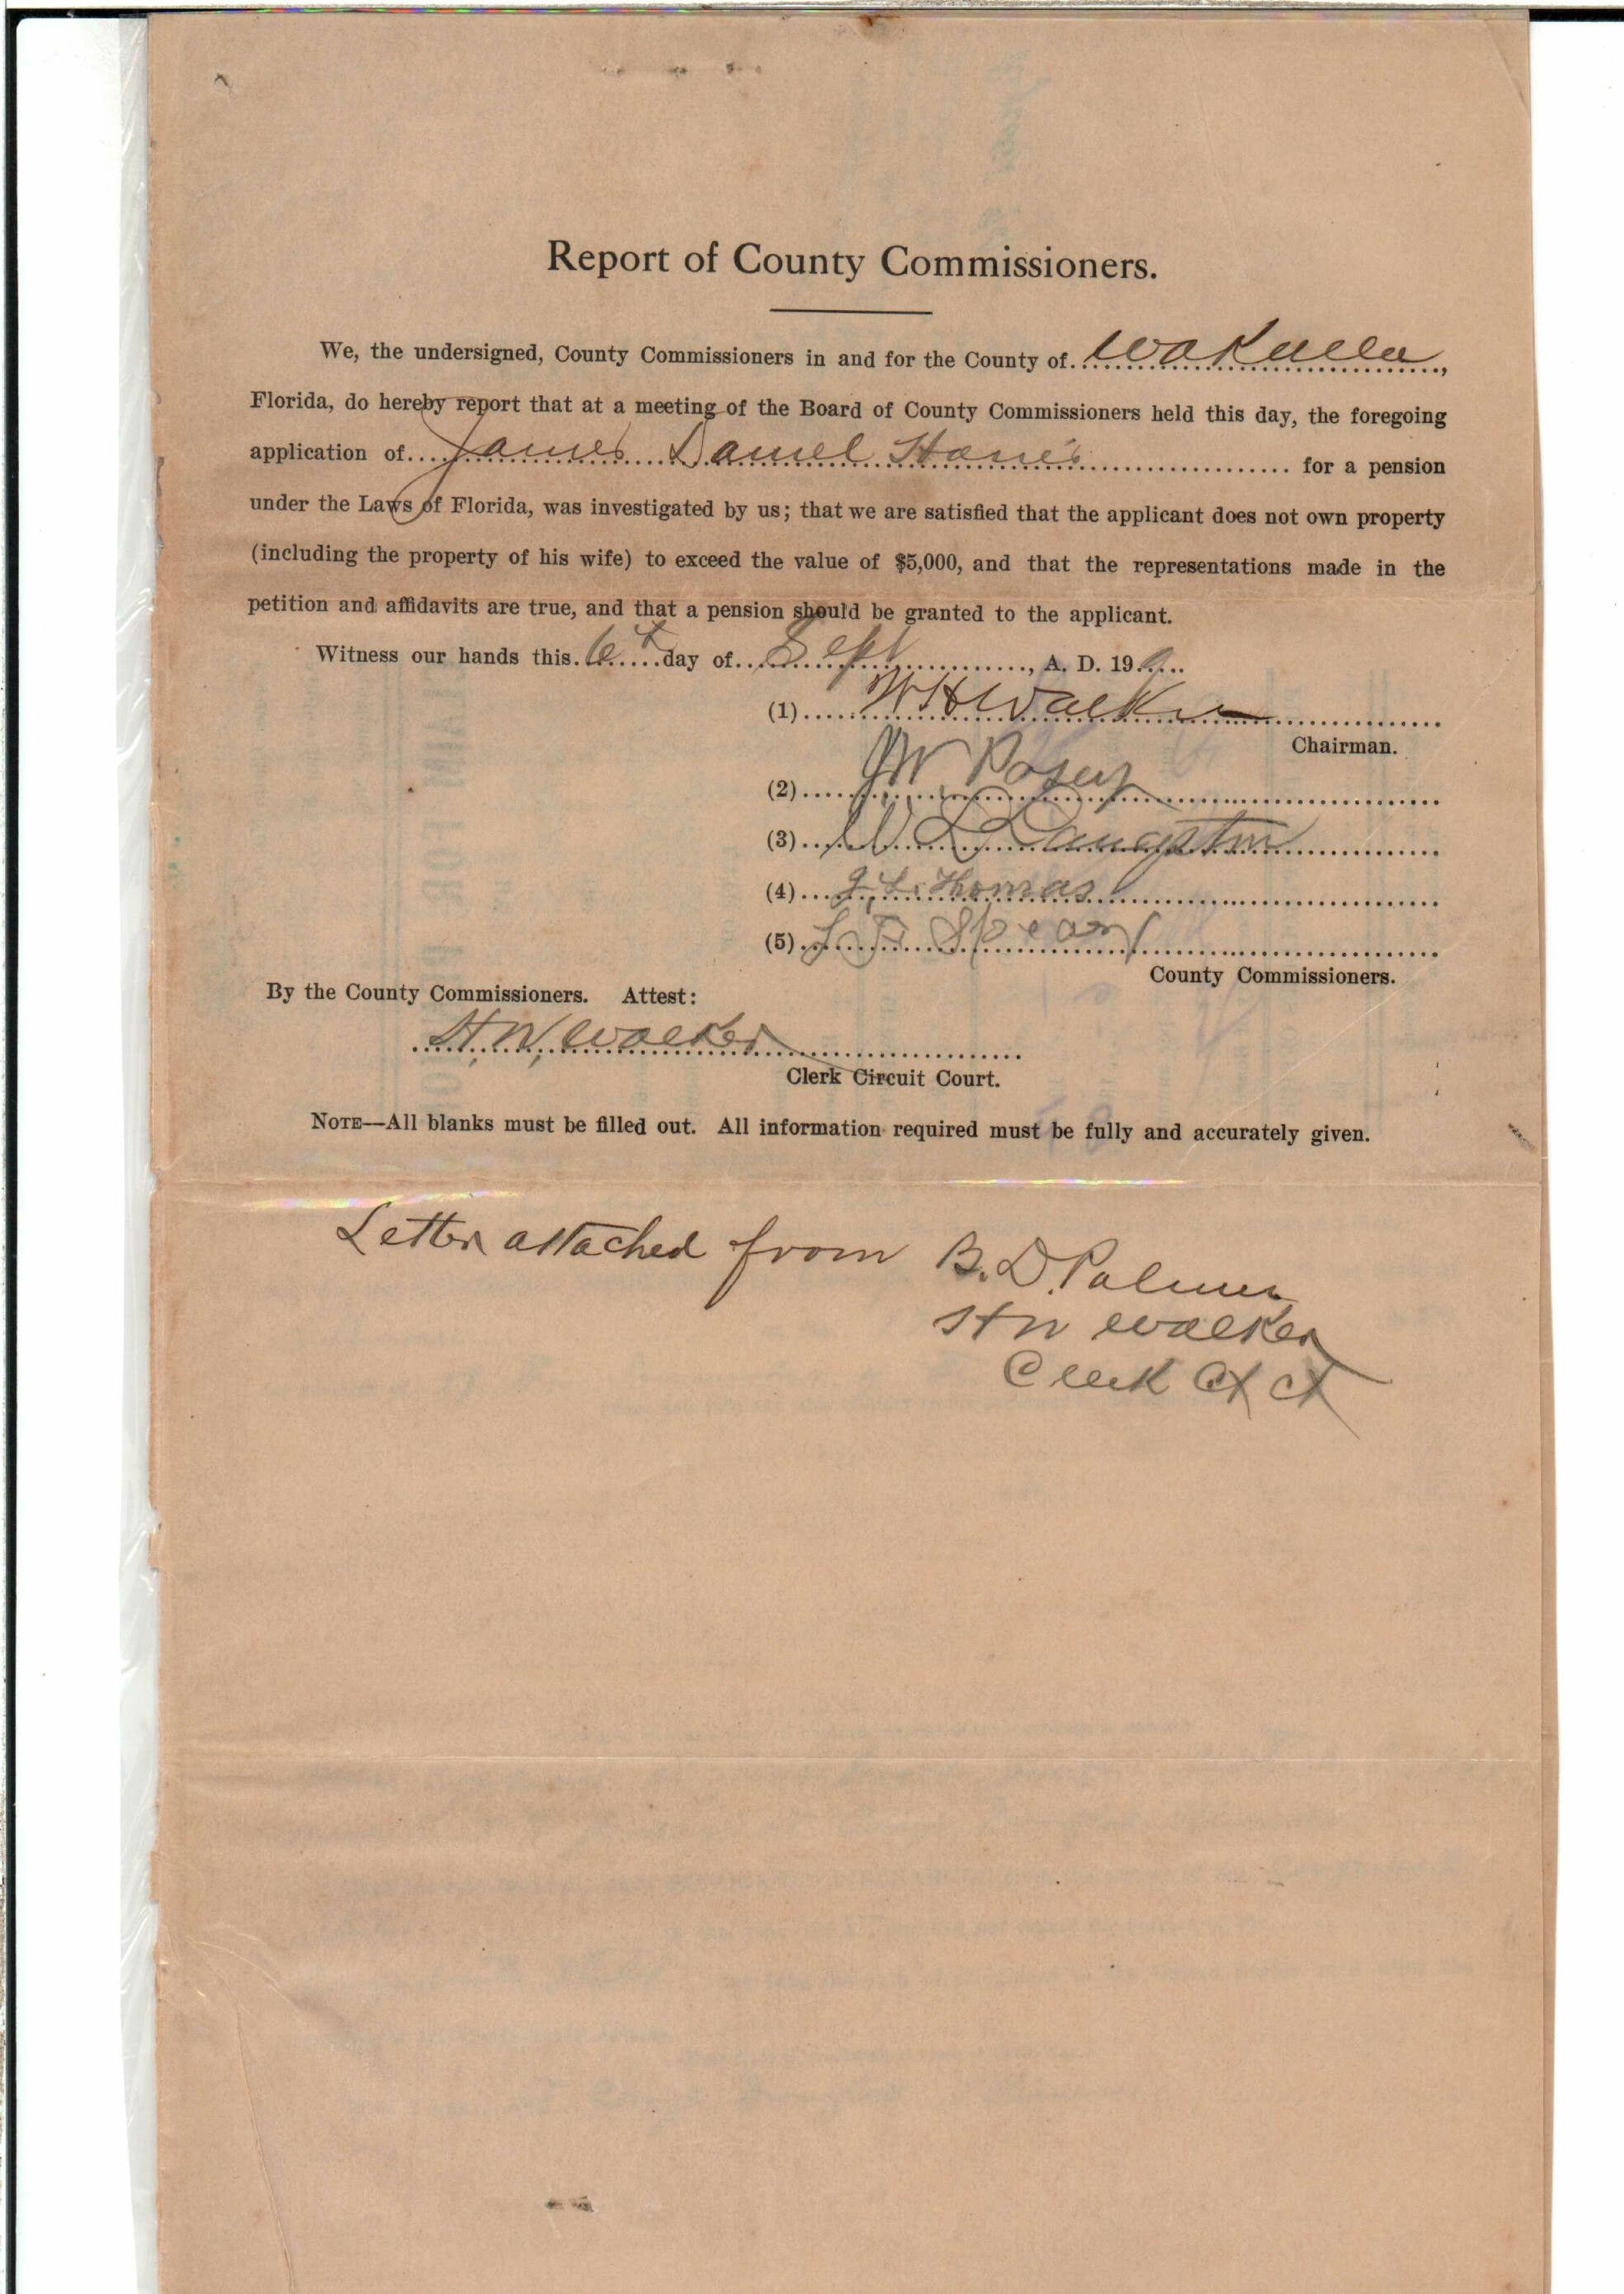 Report of County Commissioners.
We, the undersigned, County Commissioners in and for the County of Wakulla,
Florida, do hereby report that at a meeting of the Board of County Commissioners held this day, the foregoing
application of James Daniel for a pension
under the Laws of Florida, was investigated by us; that we are satisfied that the applicant does not own property
(including the property of his wife) to exceed the value of $5,000, and that the representations made in the
petition and affidavits are true, and that a pension should be granted to the applicant.
Witness our hands this 6th day of Sept, A. D. 190
(1) W H Walker
Chairman.
(2) J W Posey
(3) Langston
(4) J. L. Thomas
(5) Spears
County Commissioners.
By the County Commissioners. Attest:
H. W. Walker
Clerk Circuit Court.
NOTE—All blanks must be filled out. All information required must be fully and accurately given.
Letter attached from B. D. Palmer
H W Walker
Clerk Ct Ct